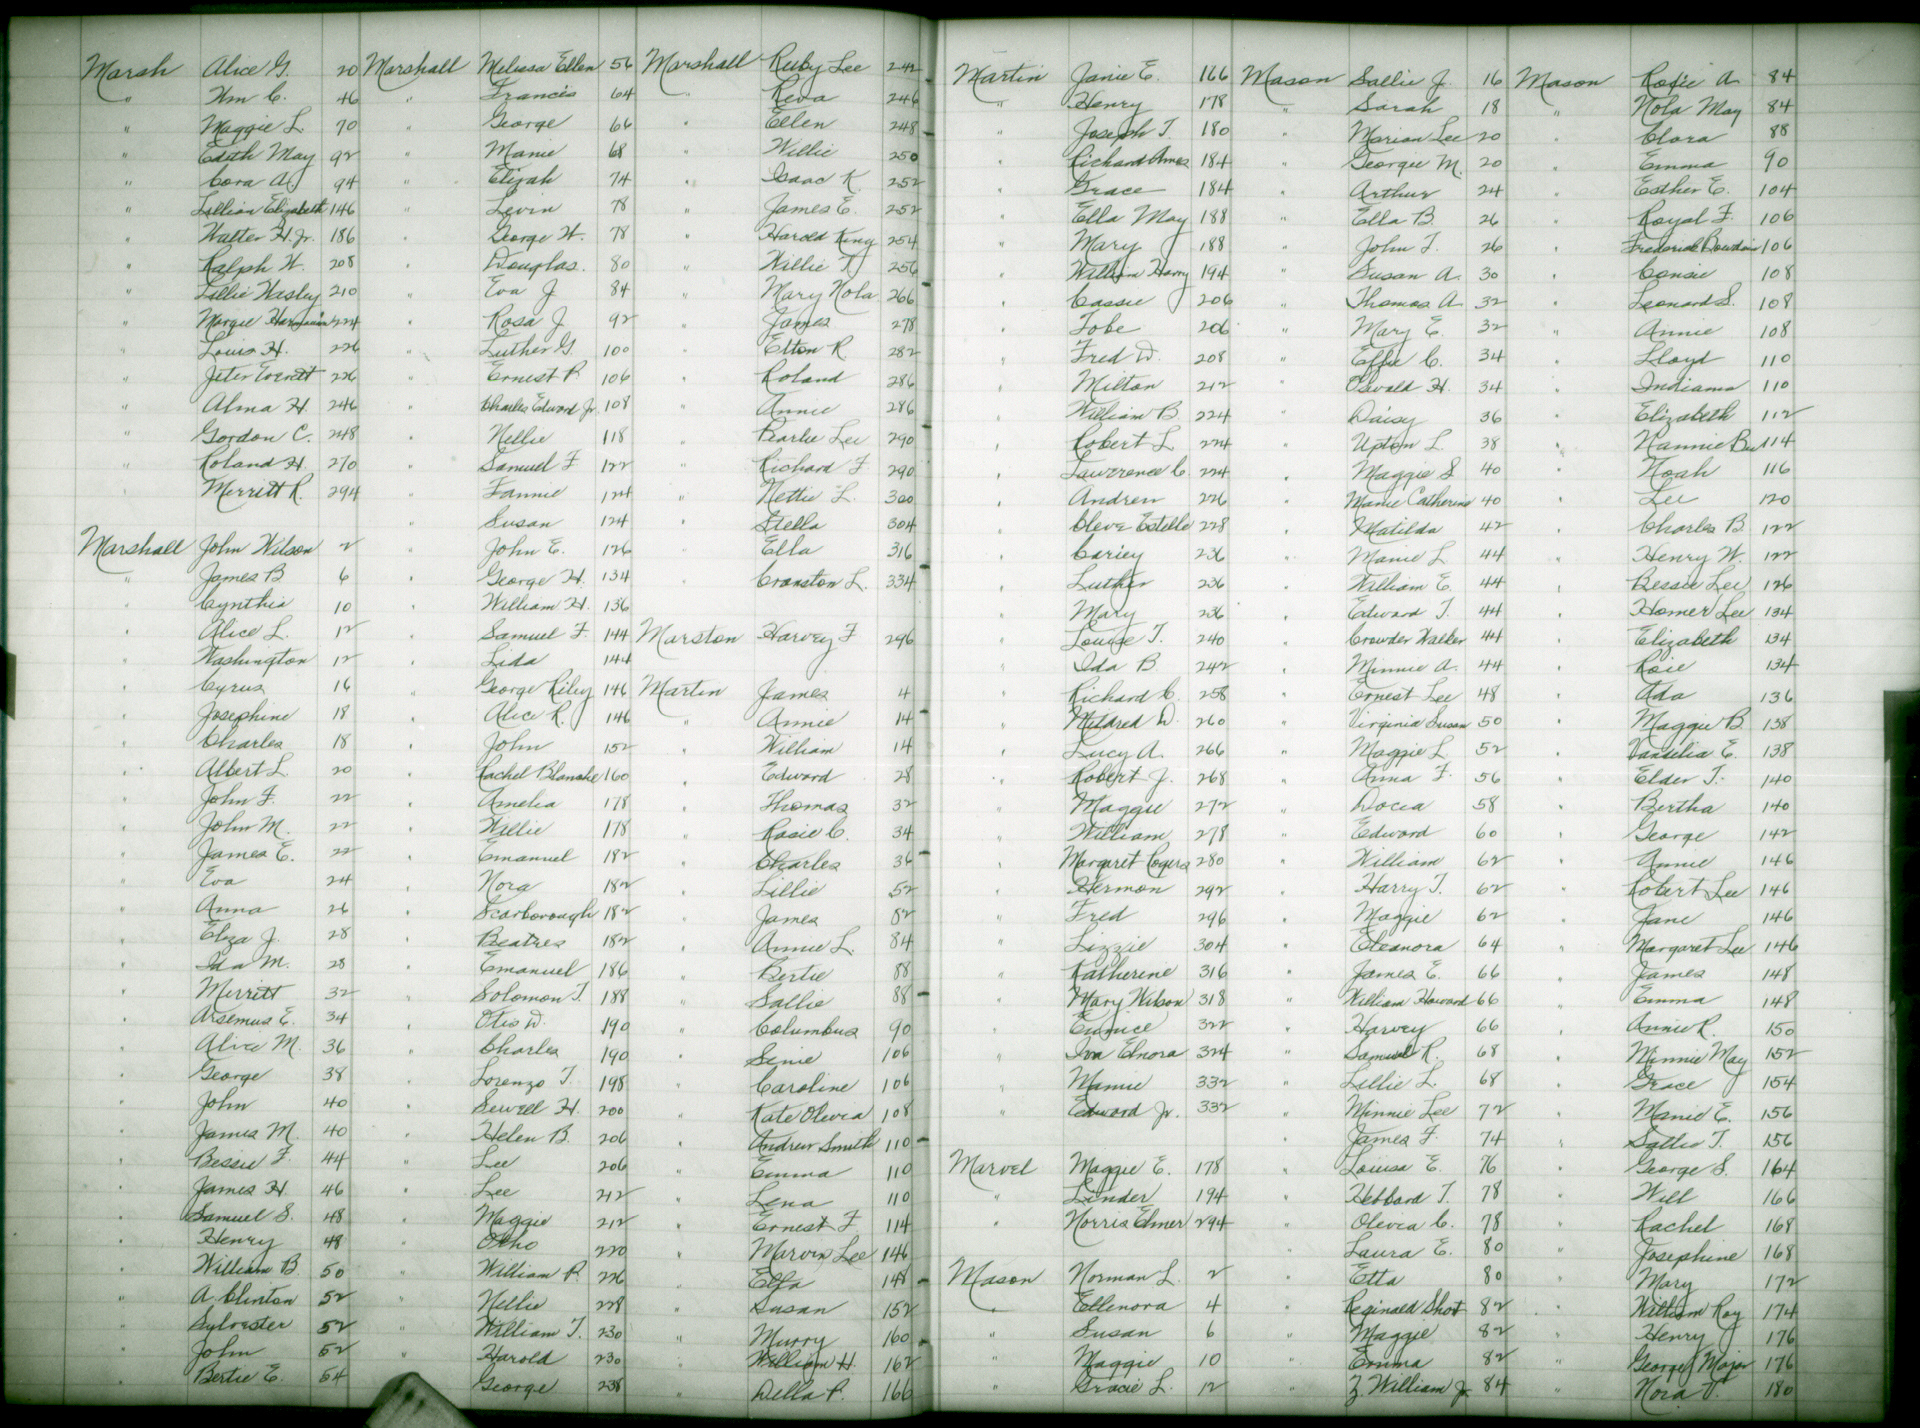 Marsh Alice G. 20
" Wm C. 46
" Maggie L. 70
" Edith May 92
" Cora A. 94
" Lillian Elizabeth 146
" Walter H. Jr. 186
" Ralph W. 208
" Lillie Wasley 210
" Margie 224
" Louis H. 226
" Jeter Everett 226
" Alma H. 246
" Gordon C. 248
" Roland H. 270
" Merritt R. 294
Marshall John Wilson 2
" James B 6
" Cynthia 10
" Alice L. 12
" Washington 12
" Cyrus 16
" Josephine 18
" Charles 18
" Albert L. 20
" John F. 22
" John M. 22
" James E. 22
" Eva 24
" Anna 26
" Eliza J. 28
" Ida M. 28
" Merritt 32
" Arsemus E. 34
" Alice M. 36
" George 38
" John 40
" James M. 40
" Bessie F. 44
" James H 46
" Samuel S. 48
" Henry 48
" William B. 50
" A. Clinton 52
" Sylvester 52
" John 52
" Bertie E. 54
Marshall Melissa Ellen 56
" Francis 64
" George 66
" Mamie 68
" Elijah 74
" Levin 78
" George W. 78
" Douglas. 80
" Eva J 84
" Rosa J 92
" Luther G. 100
" Ernest P. 106
" Charles Edward Jr. 108
" Nellie 118
" Samuel F 122
" Fannie 124
" Susan 124
" John E. 126
" George H. 134
" William H. 136
" Samuel F. 144
" Lida 144
" George Riley 146
" Alice R. 146
" John 152
" Rachel Blanche 160
" Amelia 178
" Willie 178
" Emanuel 182
" Nora 182
" Scarborough 182
" Beatres 182
" Emanuel 186
" Solomon T. 188
" Otis D. 190
" Charles 190
" Lorenzo T. 198
" Sewell H. 200
" Helen B. 206
" Lee 206
" Lee 212
" Maggie 212
" Otho 220
" William P. 226
" Nellie 228
" William T. 230
" Harold 230
" George 238
Marshall Ruby Lee 242
" Reva 246
" Ellen 248
" Willie 250
" Isaac K. 252
" James E. 252
" Harold King 254
" Willie T. 256
" Mary Nola 266
" James 278
" Elton R. 282
" Roland 286
" Annie 286
" Pearlie Lee 290
" Richard F 290
" Nettie L. 300
" Stella 304
" Ella 316
" Cranston L. 334
Marston Harvey F 296
Martin James 4
" Annie 14
" William 14
" Edward 28
" Thomas 32
" Rosie C. 34
" Charles 36
" Lillie 52
" James 82
" Annie L. 84
" Bertie 88
" Sallie 88
" Columbus 90
" Sinie 106
" Caroline 106
" Kate Olivia 108
" Andrew Smith 110
" Emma 110
" Lena 110
" Ernest F 114
" Marvin Lee 146
" Effa 148
" Susan 152
" Murry 160
" William H. 162
" Della P. 166
Martin Janie E. 166
" Henry 178
" Joseph T. 180
" Richard Ames 184
" Grace 184
" Ella May 188
" Mary 188
" William Harry 194
" Cassie 206
" Tobe 206
" Fred D. 208
" Milton 212
" William B 224
" Robert L 224
" Lawrence C 224
" Andrew 226
" Cleve Estelle 228
" Cariey 236
" Luther 236
" Mary 236
" Louise T. 240
" Ida B 242
" Richard C. 258
" Mildred D. 260
" Lucy A. 266
" Robert J. 268
" Maggie 272
" William 278
" Margaret Rogers 280
" Hermon 292
" Fred 296
" Lizzie 304
" Katherine 316
" Mary Wilson 318
" Eunice 322
" Iva Elnora 324
" Mamie 332
" Edward Jr. 332
Marvel Maggie E. 178
" Linder 194
" Norris Elmer 294
Mason Norman L. 2
" Ellenora 4
" Susan 6
" Maggie 10
" Gracie L. 12
Mason Sallie J. 16
" Sarah 18
" Marian Lee 20
" Georgie M. 20
" Arthur 24
" Ella B 26
" John T. 26
" Susan A. 30
" Thomas A. 32
" Mary E. 32
" Effie C. 34
" Oswald H. 34
" Daisy 36
" Upton L. 38
" Maggie S 40
" Mamie Catherine 40
" Matilda 42
" Mamie L 44
" William E. 44
" Edward T. 44
" Crowder Walker 44
" Minnie A. 44
" Ernest Lee 48
" Virginia Susan 50
" Maggie L 52
" Anna F. 56
" Docia 58
" Edward 60
" William 62
" Harry T. 62
" Maggie 62
" Eleanora 64
" James E. 66
" William Howard 66
" Harvey 66
" Samuel R. 68
" Lillie L. 68
" Minnie Lee 72
" James F. 74
" Louisa E. 76
" Hebbard T. 78
" Olevia C. 78
" Laura E. 80
" Etta 80
" Reginald Shot 82
" Maggie 82
" Emma 82
" Z. William Jr 84
Mason Rosie A. 84
" Nola May 84
" Clara 88
" Emma 90
" Esther E. 104
" Royal F. 106
" Frederick Bowdoin 106
" Consie 108
" Leonard S. 108
" Annie 108
" Lloyd 110
" Indiana 110
" Elizabeth 112
" Nannie 114
" Noah 116
" Lee 120
" Charles B 122
" Henry W. 122
" Bessie Lee 126
" Homer Lee 134
" Elizabeth 134
" Rosie 134
" Ada 136
" Maggie B. 138
" Vandilia E. 138
" Elder T. 140
" Bertha 140
" George 142
" Annie 146
" Robert Lee 146
" Jane 146
" Margaret Lee 146
" James 148
" Emma 148
" Annie R. 150
" Minnie May 152
" Grace 154
" Mamie E. 156
" Sallie T. 156
" George S. 164
" Will 166
" Rachel 168
" Josephine 168
" Mary 172
" William Roy 174
" Henry 176
" George Major 176
" Nora V. 180